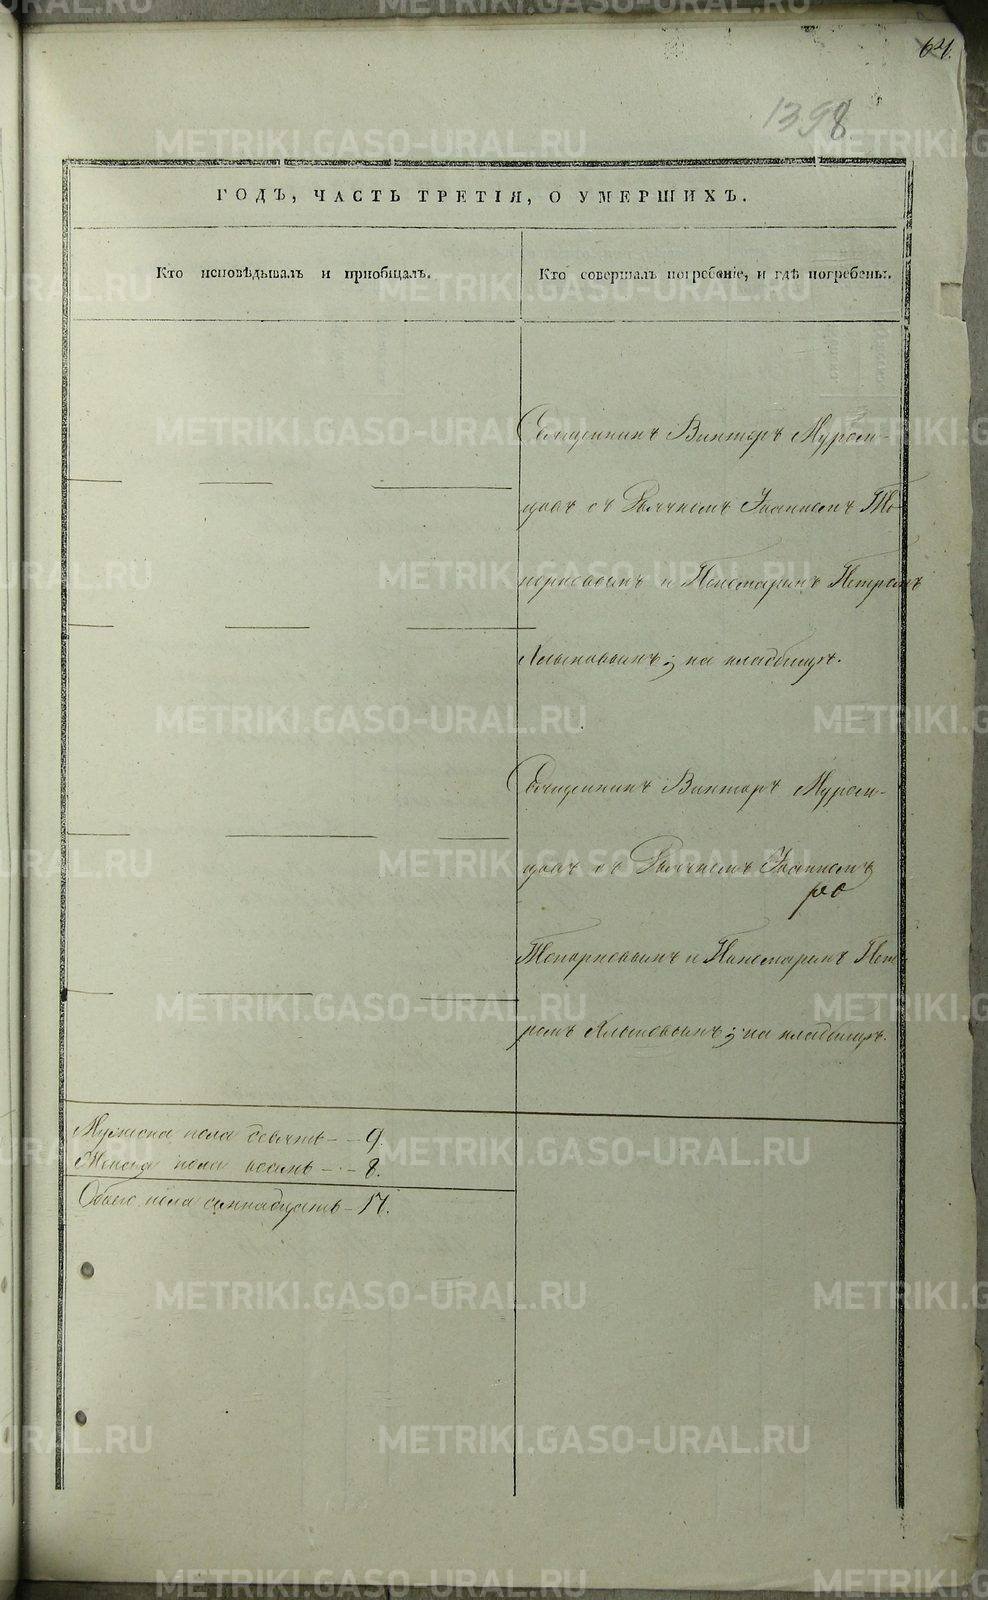 64.
1398
ГОДЪ, ЧАСТЬ ТРЕТІЯ, О УМЕРШИХЪ.
Кто исповѣдывалъ и пріобщалъ.
Кто совершалъ погребеніе, и гдѣ погребены.
Священникъ Викторъ Муром-
цовъ съ Іоанномъ То
порковымъ и Пономаремъ Петромъ
Хлыновымъ; на кладбищѣ.
Священникъ Викторъ Муром-
цовъ съ Іоанномъ
Топорковымъ и Пономаремъ Пет
ромъ Хлыновымъ; на кладбищѣ.
Мужеска пола девять - - 9.
Женска пола восемь - - 8.
Обоего пола семнадцать - 17.
METRIKI.GASO-URAL.RU